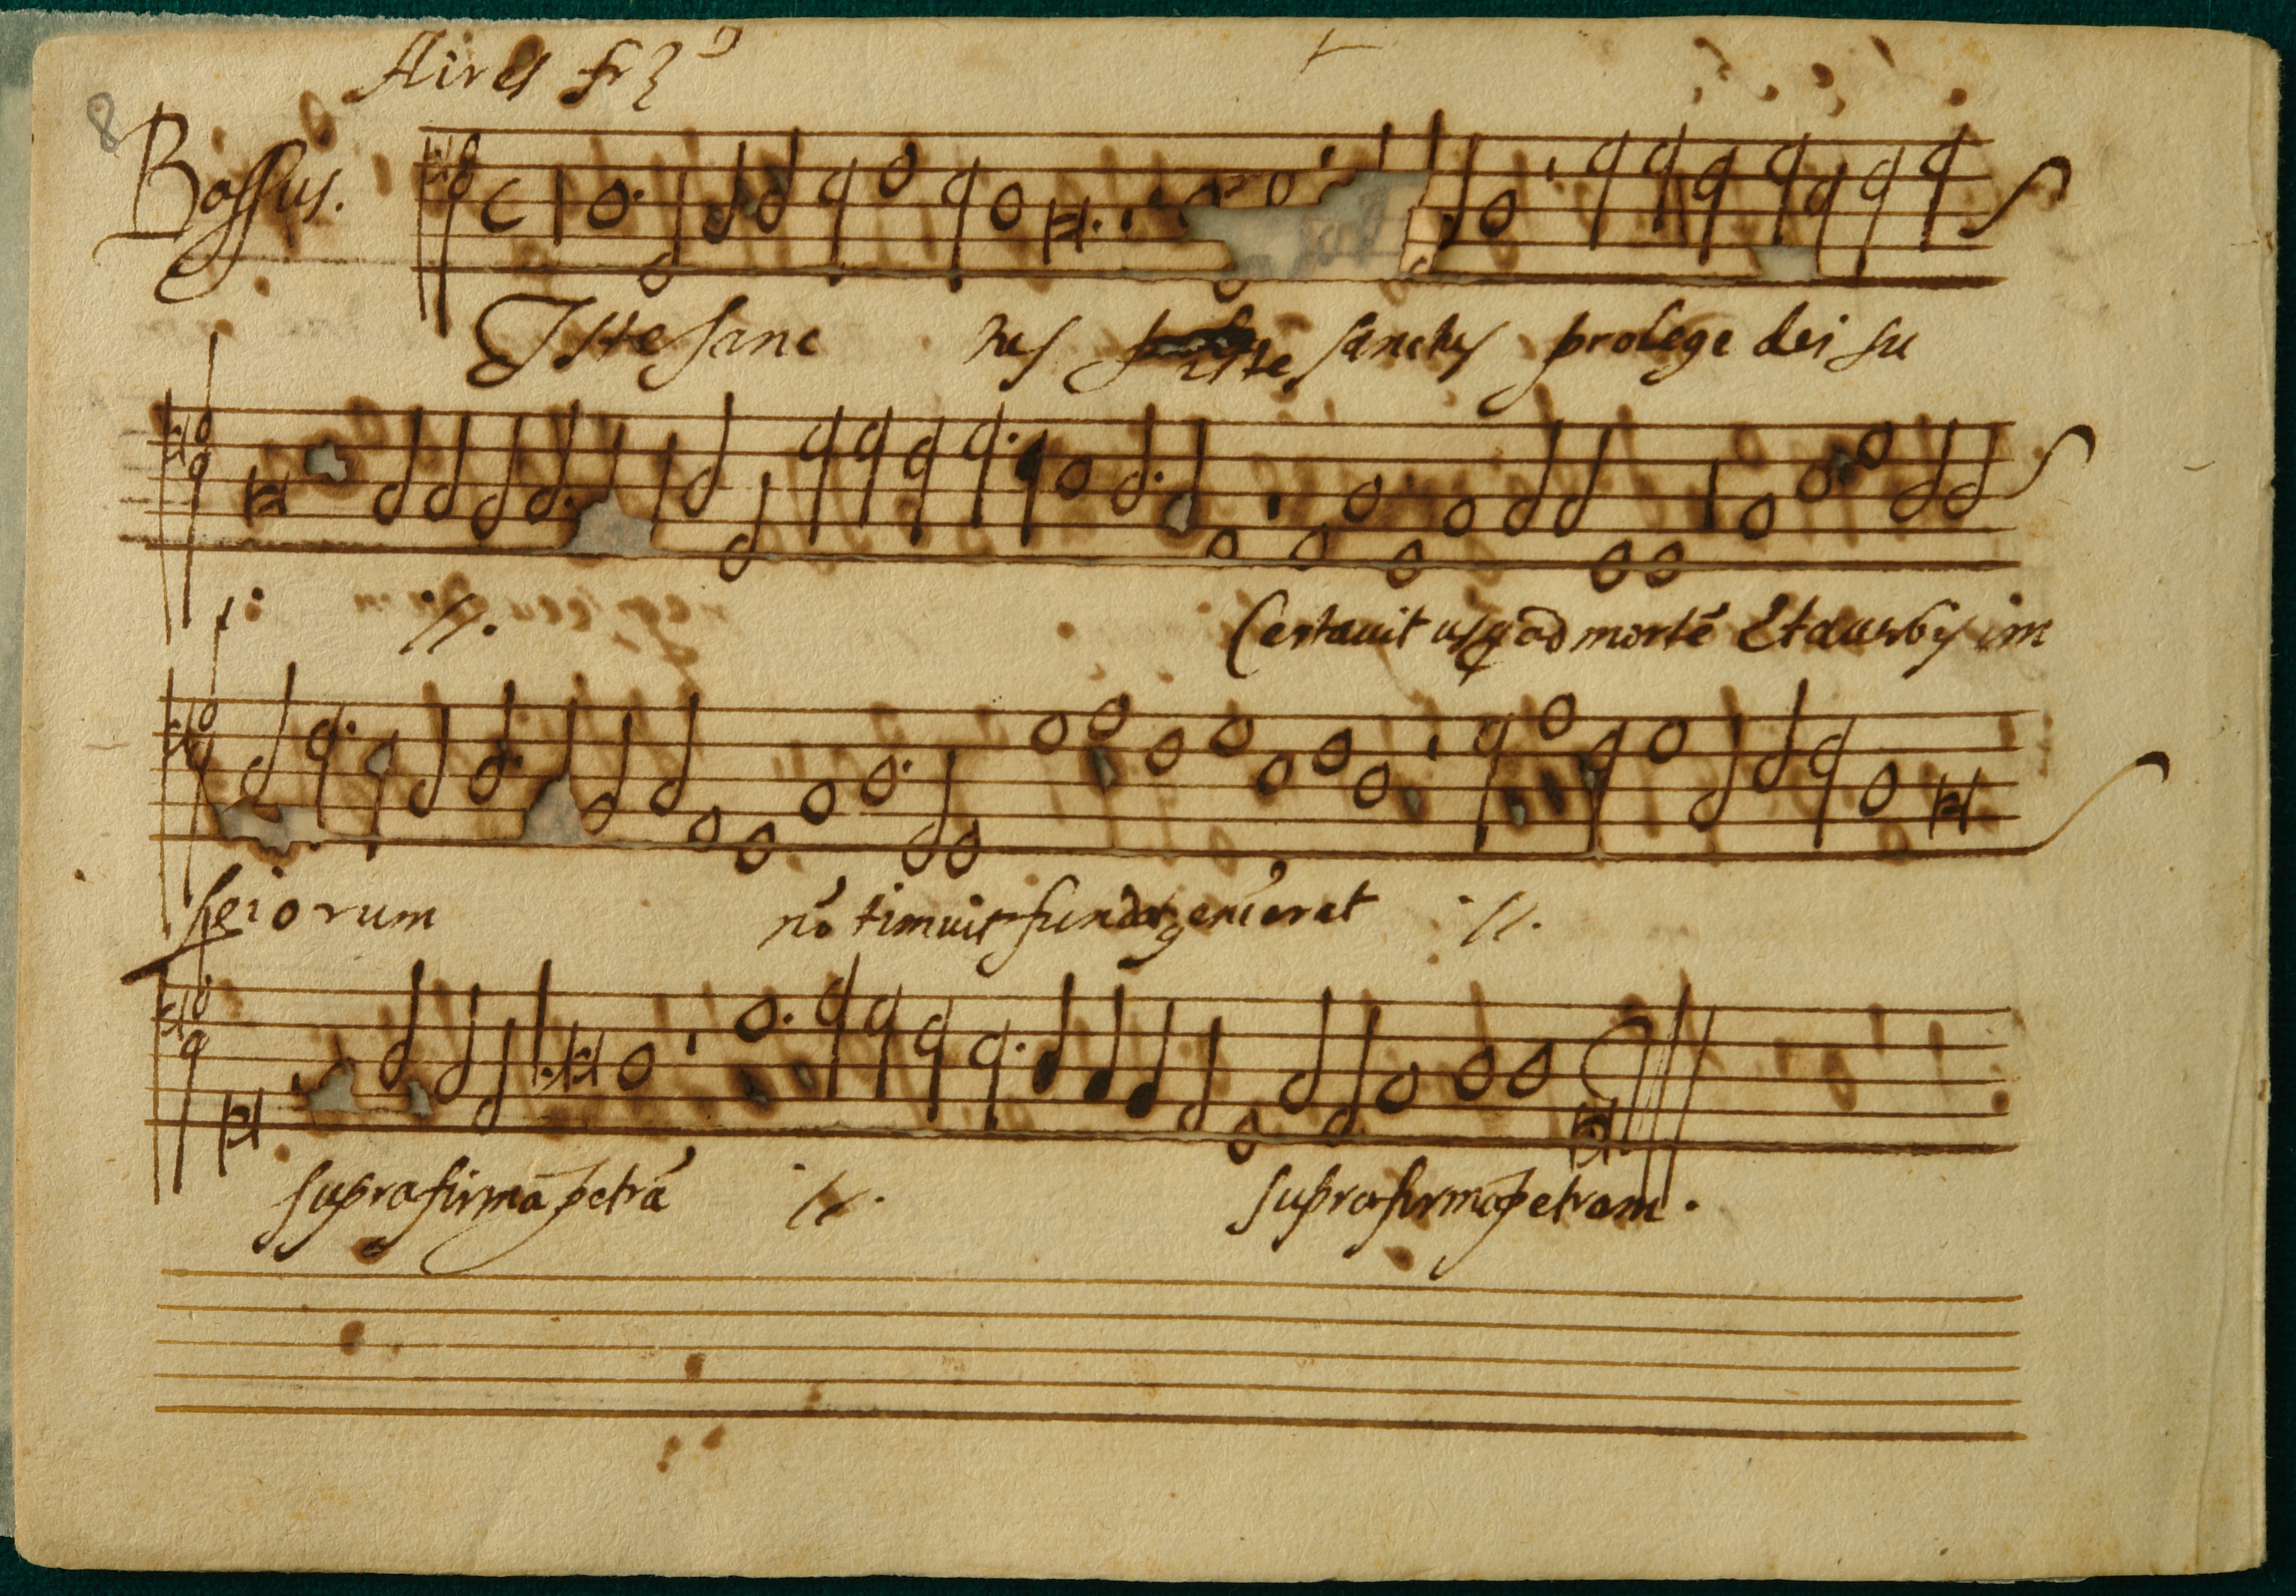 Aires frz
8
Bassus.
Iste sanc tus iste sanctus prolege dei su
i ://. Certavit usq ad mortē Et a verbis im
piorum nō timuit fundatq eni erat :/ /.
supra firmā petrā :/ /. supra firmā petram.